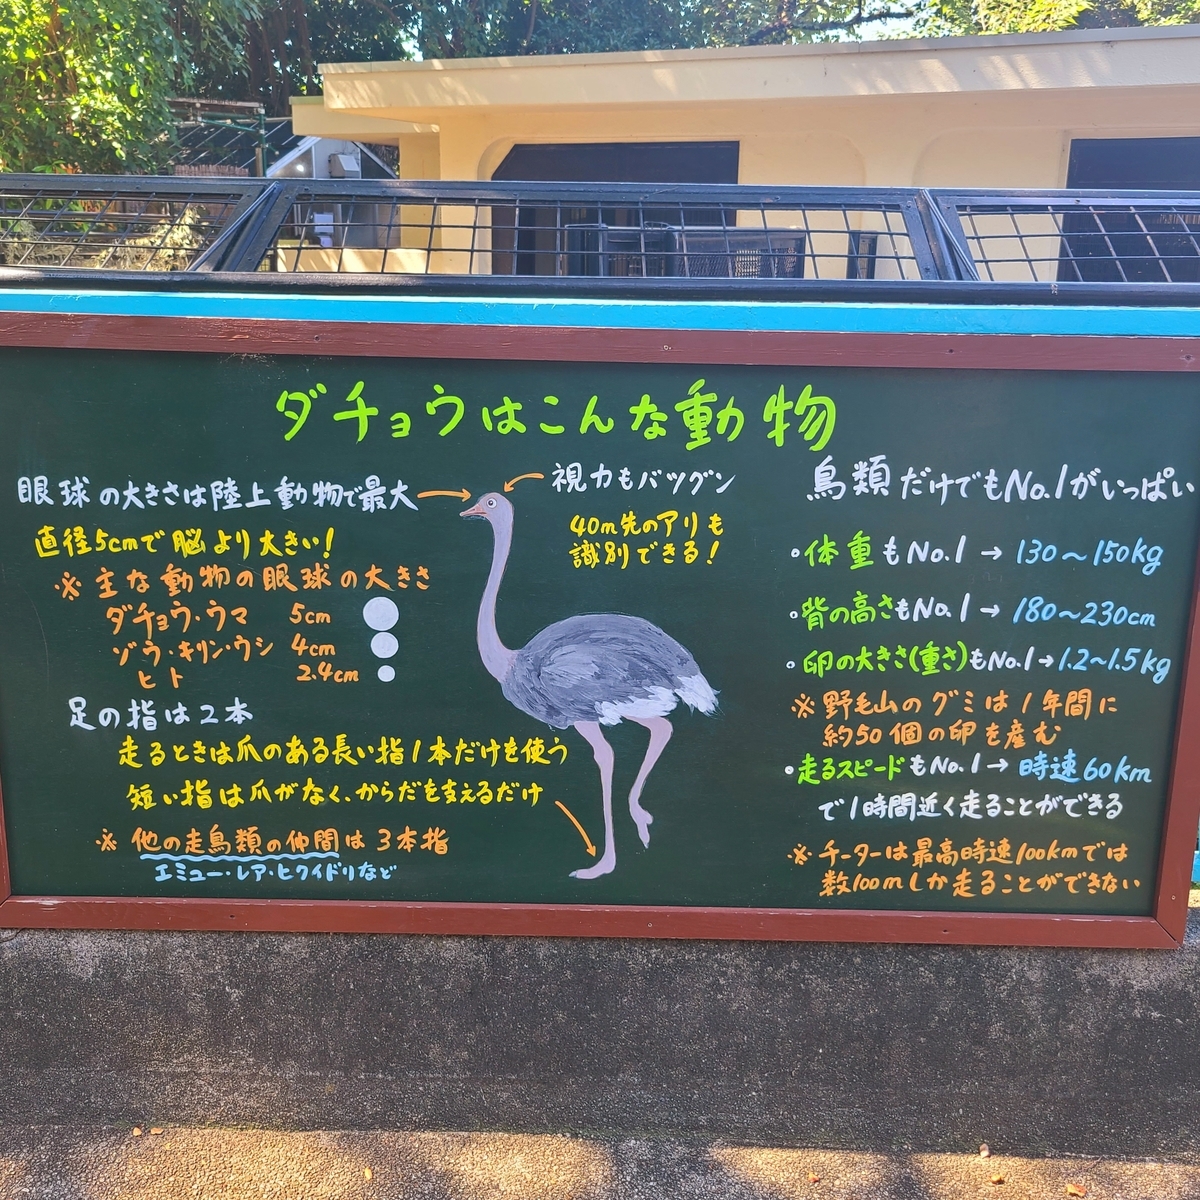 ダチョウはこんな動物
眼球の大きさは陸上動物で最大
直径5cmで脳より大きい!
※主な動物の眼球の大きさ
ダチョウ・ウマ 5cm
ゾウ・キリン・ウシ 4cm
ヒト 2.4cm
足の指は2本
走るときは爪のある長い指1本だけを使う
短い指は爪がなく、からだを支えるだけ
※他の走鳥類の仲間は3本指
エミュー・レア・ヒクイドリなど
視力もバツグン
40m先のアリも
識別できる!
鳥類だけでもNo.1がいっぱい
・体重もNo.1→130～150kg
・背の高さもNo.1→180～230cm
・卵の大きさ(重さ)もNo.1→1.2～1.5kg
※野毛山のグミは1年間に
約50個の卵を産む
・走るスピードもNo.1→時速60km
で1時間近く走ることができる
※チーターは最高時速100kmでは
数100mしか走ることができない